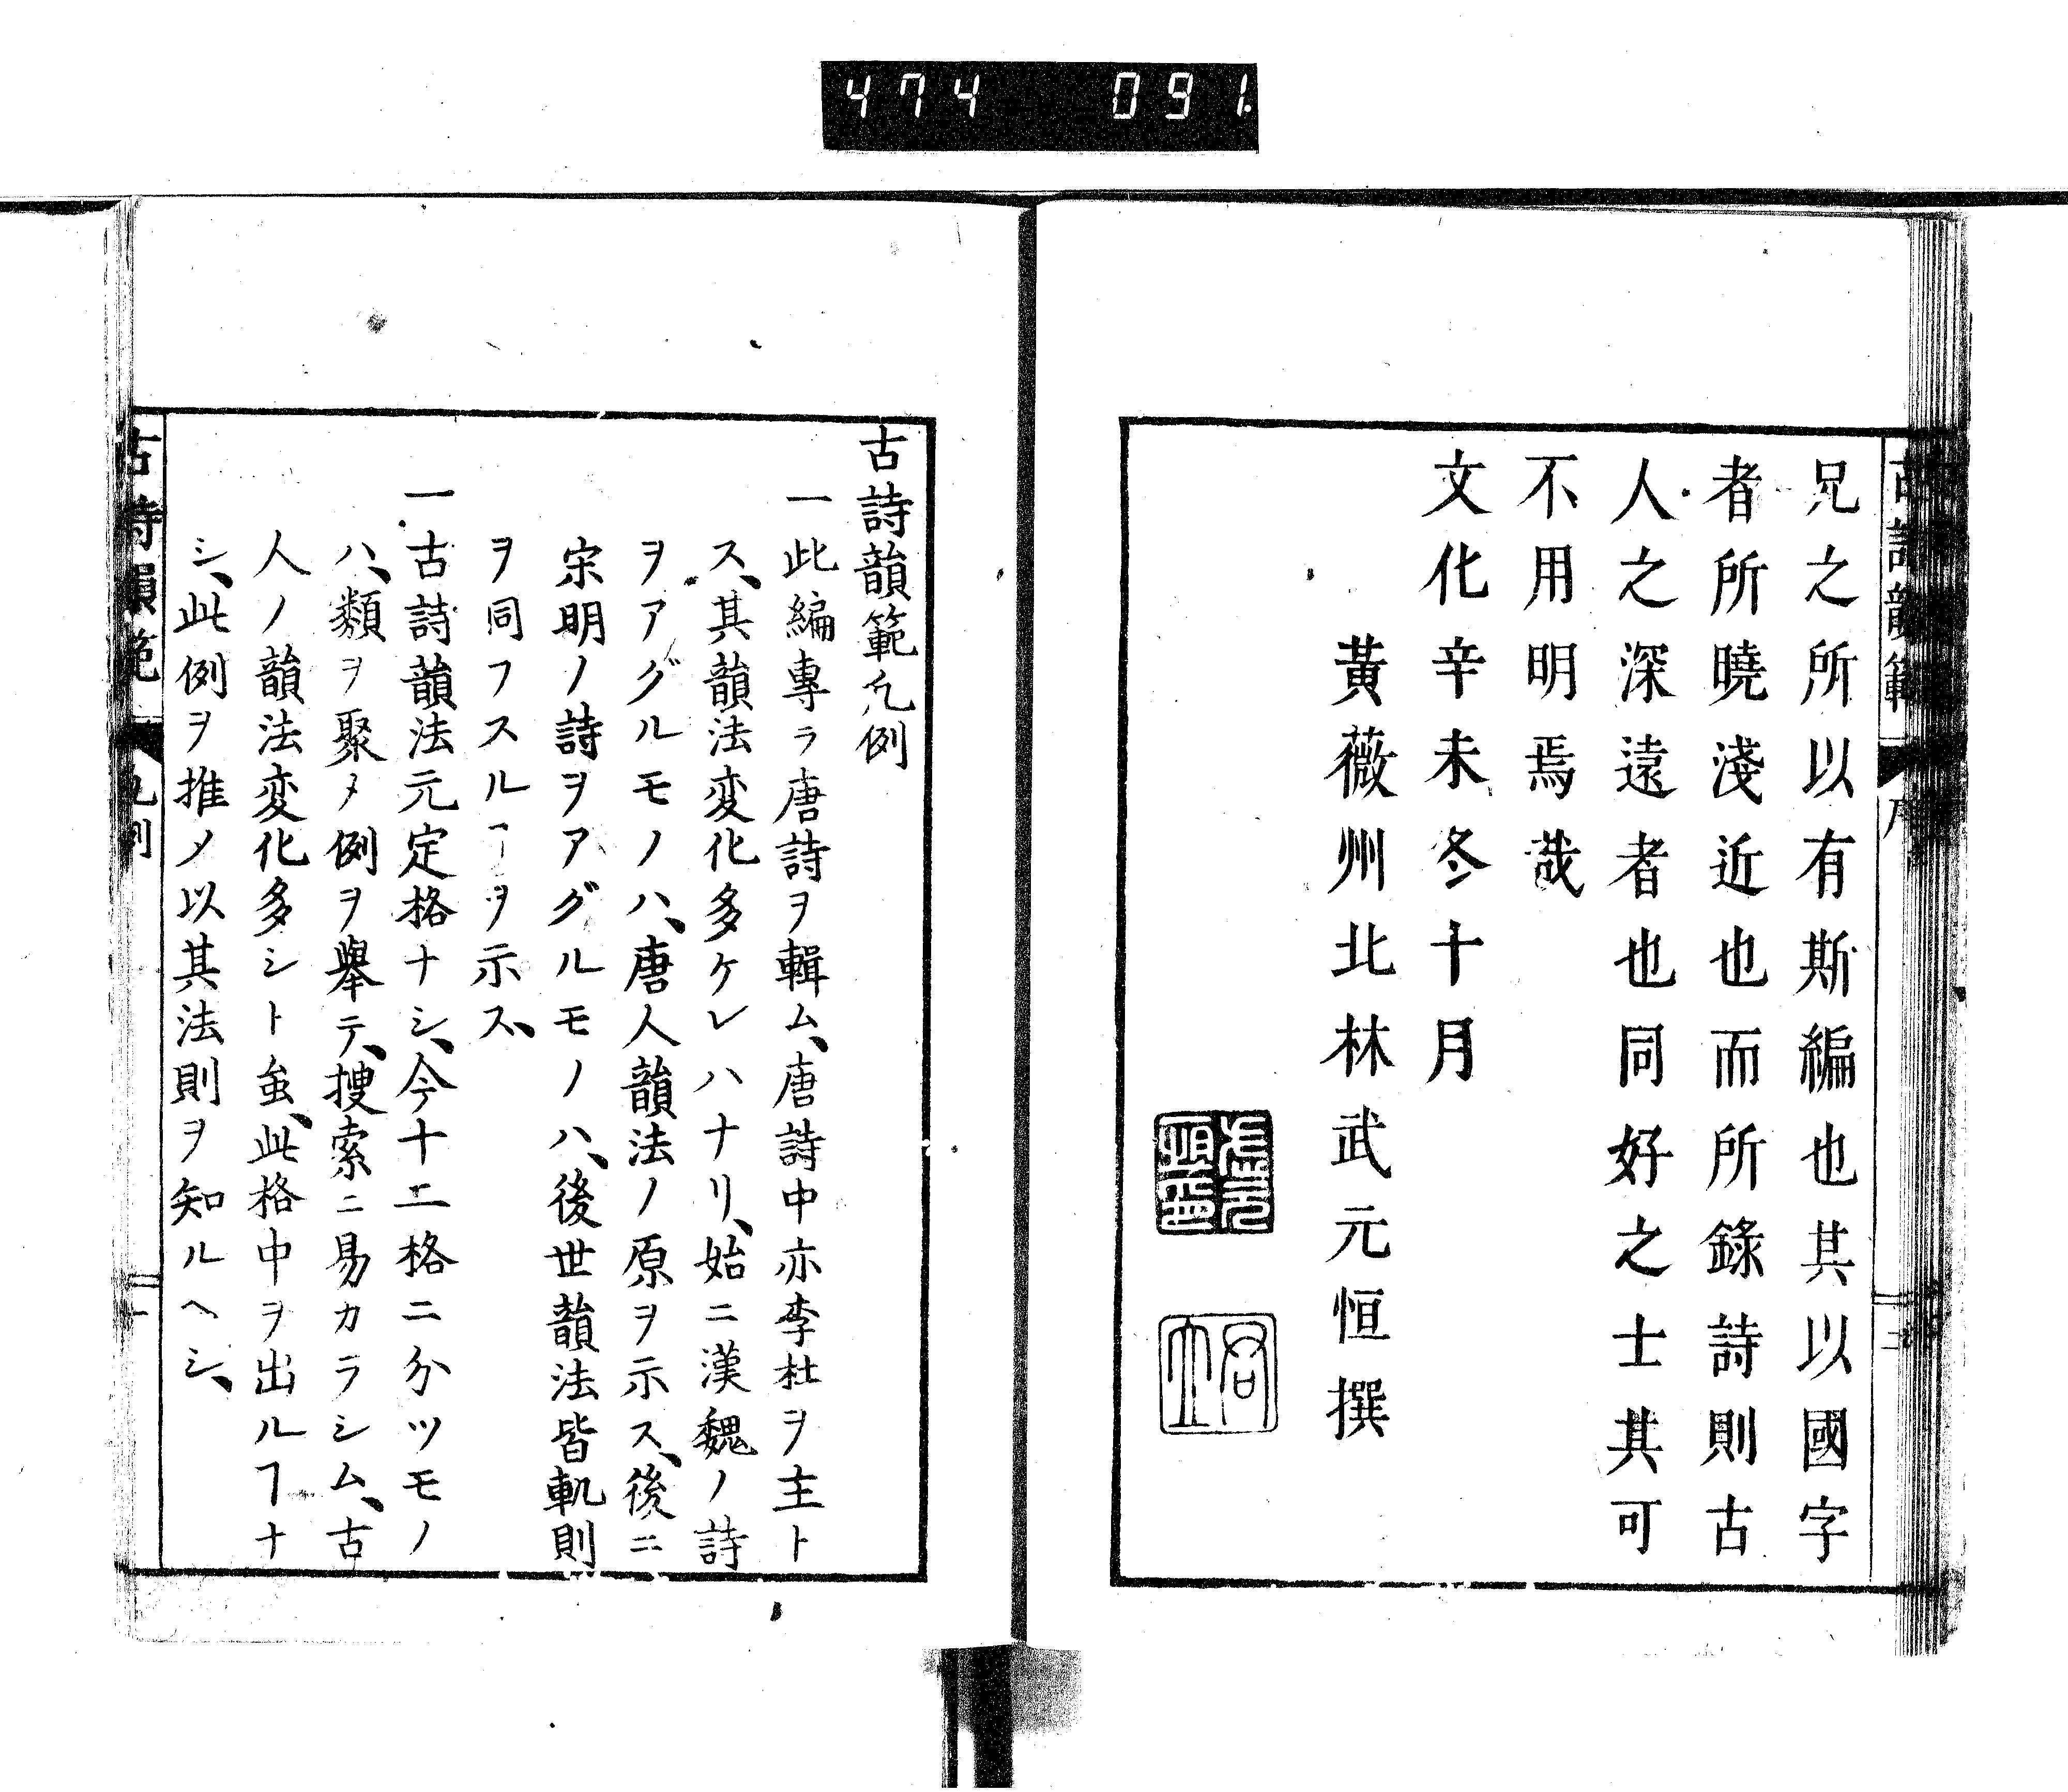 474 091.
兄之所以有斯編也其以國字
者所曉淺近也而所錄詩則古
人之深遠者也同好之士其可
不用明焉哉
文化辛未冬十月
黃薇州北林武元恒撰
古詩韻範凡例
一此編專ラ唐詩ヲ輯ム、唐詩中亦李杜ヲ主ト
ス、其韻法変化多ケレハナリ、始ニ漢魏ノ詩
ヲアグルモノハ、唐人韻法ノ原ヲ示ス、後ニ
宋明ノ詩ヲアグルモノハ、後世韻法皆軌則
ヲ同フスルヿヲ示ス、
一古詩韻法元定格ナシ、今十二格ニ分ツモノ
ハ、類ヲ聚メ例ヲ舉テ、搜索ニ易カラシム、古
人ノ韻法変化多シト虽、此格中ヲ出ルヿナ
シ、此例ヲ推メ以其法則ヲ知ルヘシ、
古詩韻範 凡例 一